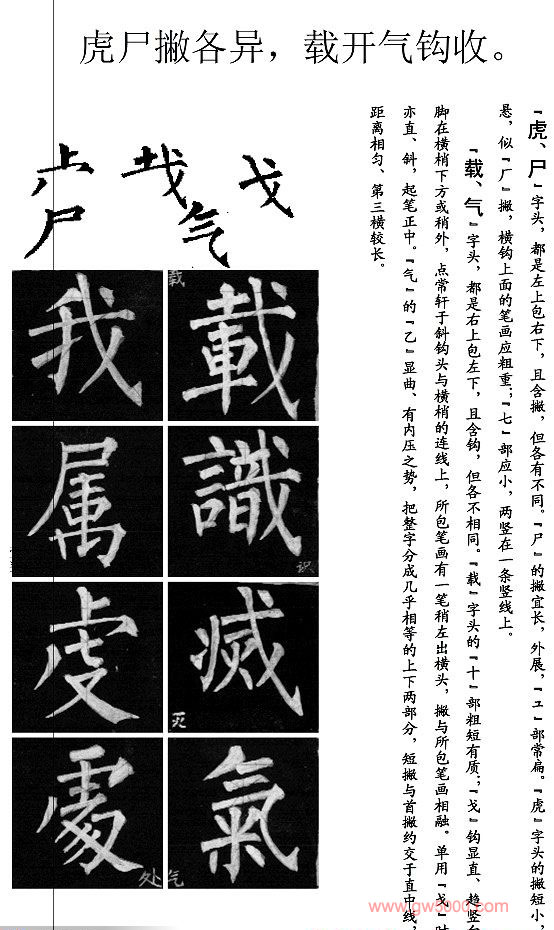 虎尸撇各异，载开气钩收。
『虎、尸』字头，都是左上包右下，且含撇，但各有不同。『尸』的撇宜长，外展，『ユ』部常扁。『虎』字头的撇短小，
悬，似『厂』撇，横钩上面的笔画应粗重；『七』部应小，两竖在一条竖线上。
『载、气』字头，都是右上包左下，且含钩，但各不相同。『载』字头的『十』部粗短有质；『戈』钩显直、趋竖
脚在横梢下方或稍外，点常轩于斜钩头与横梢的连线上，所包笔画有一笔稍左出横头，撇与所包笔画相融。单用『戈』时
亦直、斜，起笔正中。『气』的『乙』显曲、有内压之势，把整字分成几乎相等的上下两部分，短撇与首撇约交于直中线，
距离相匀、第三横较长。
戈
尸 气
我 載 载
属 識 识
虔 滅 灭
處 处 氣 气
www.gw5000.com